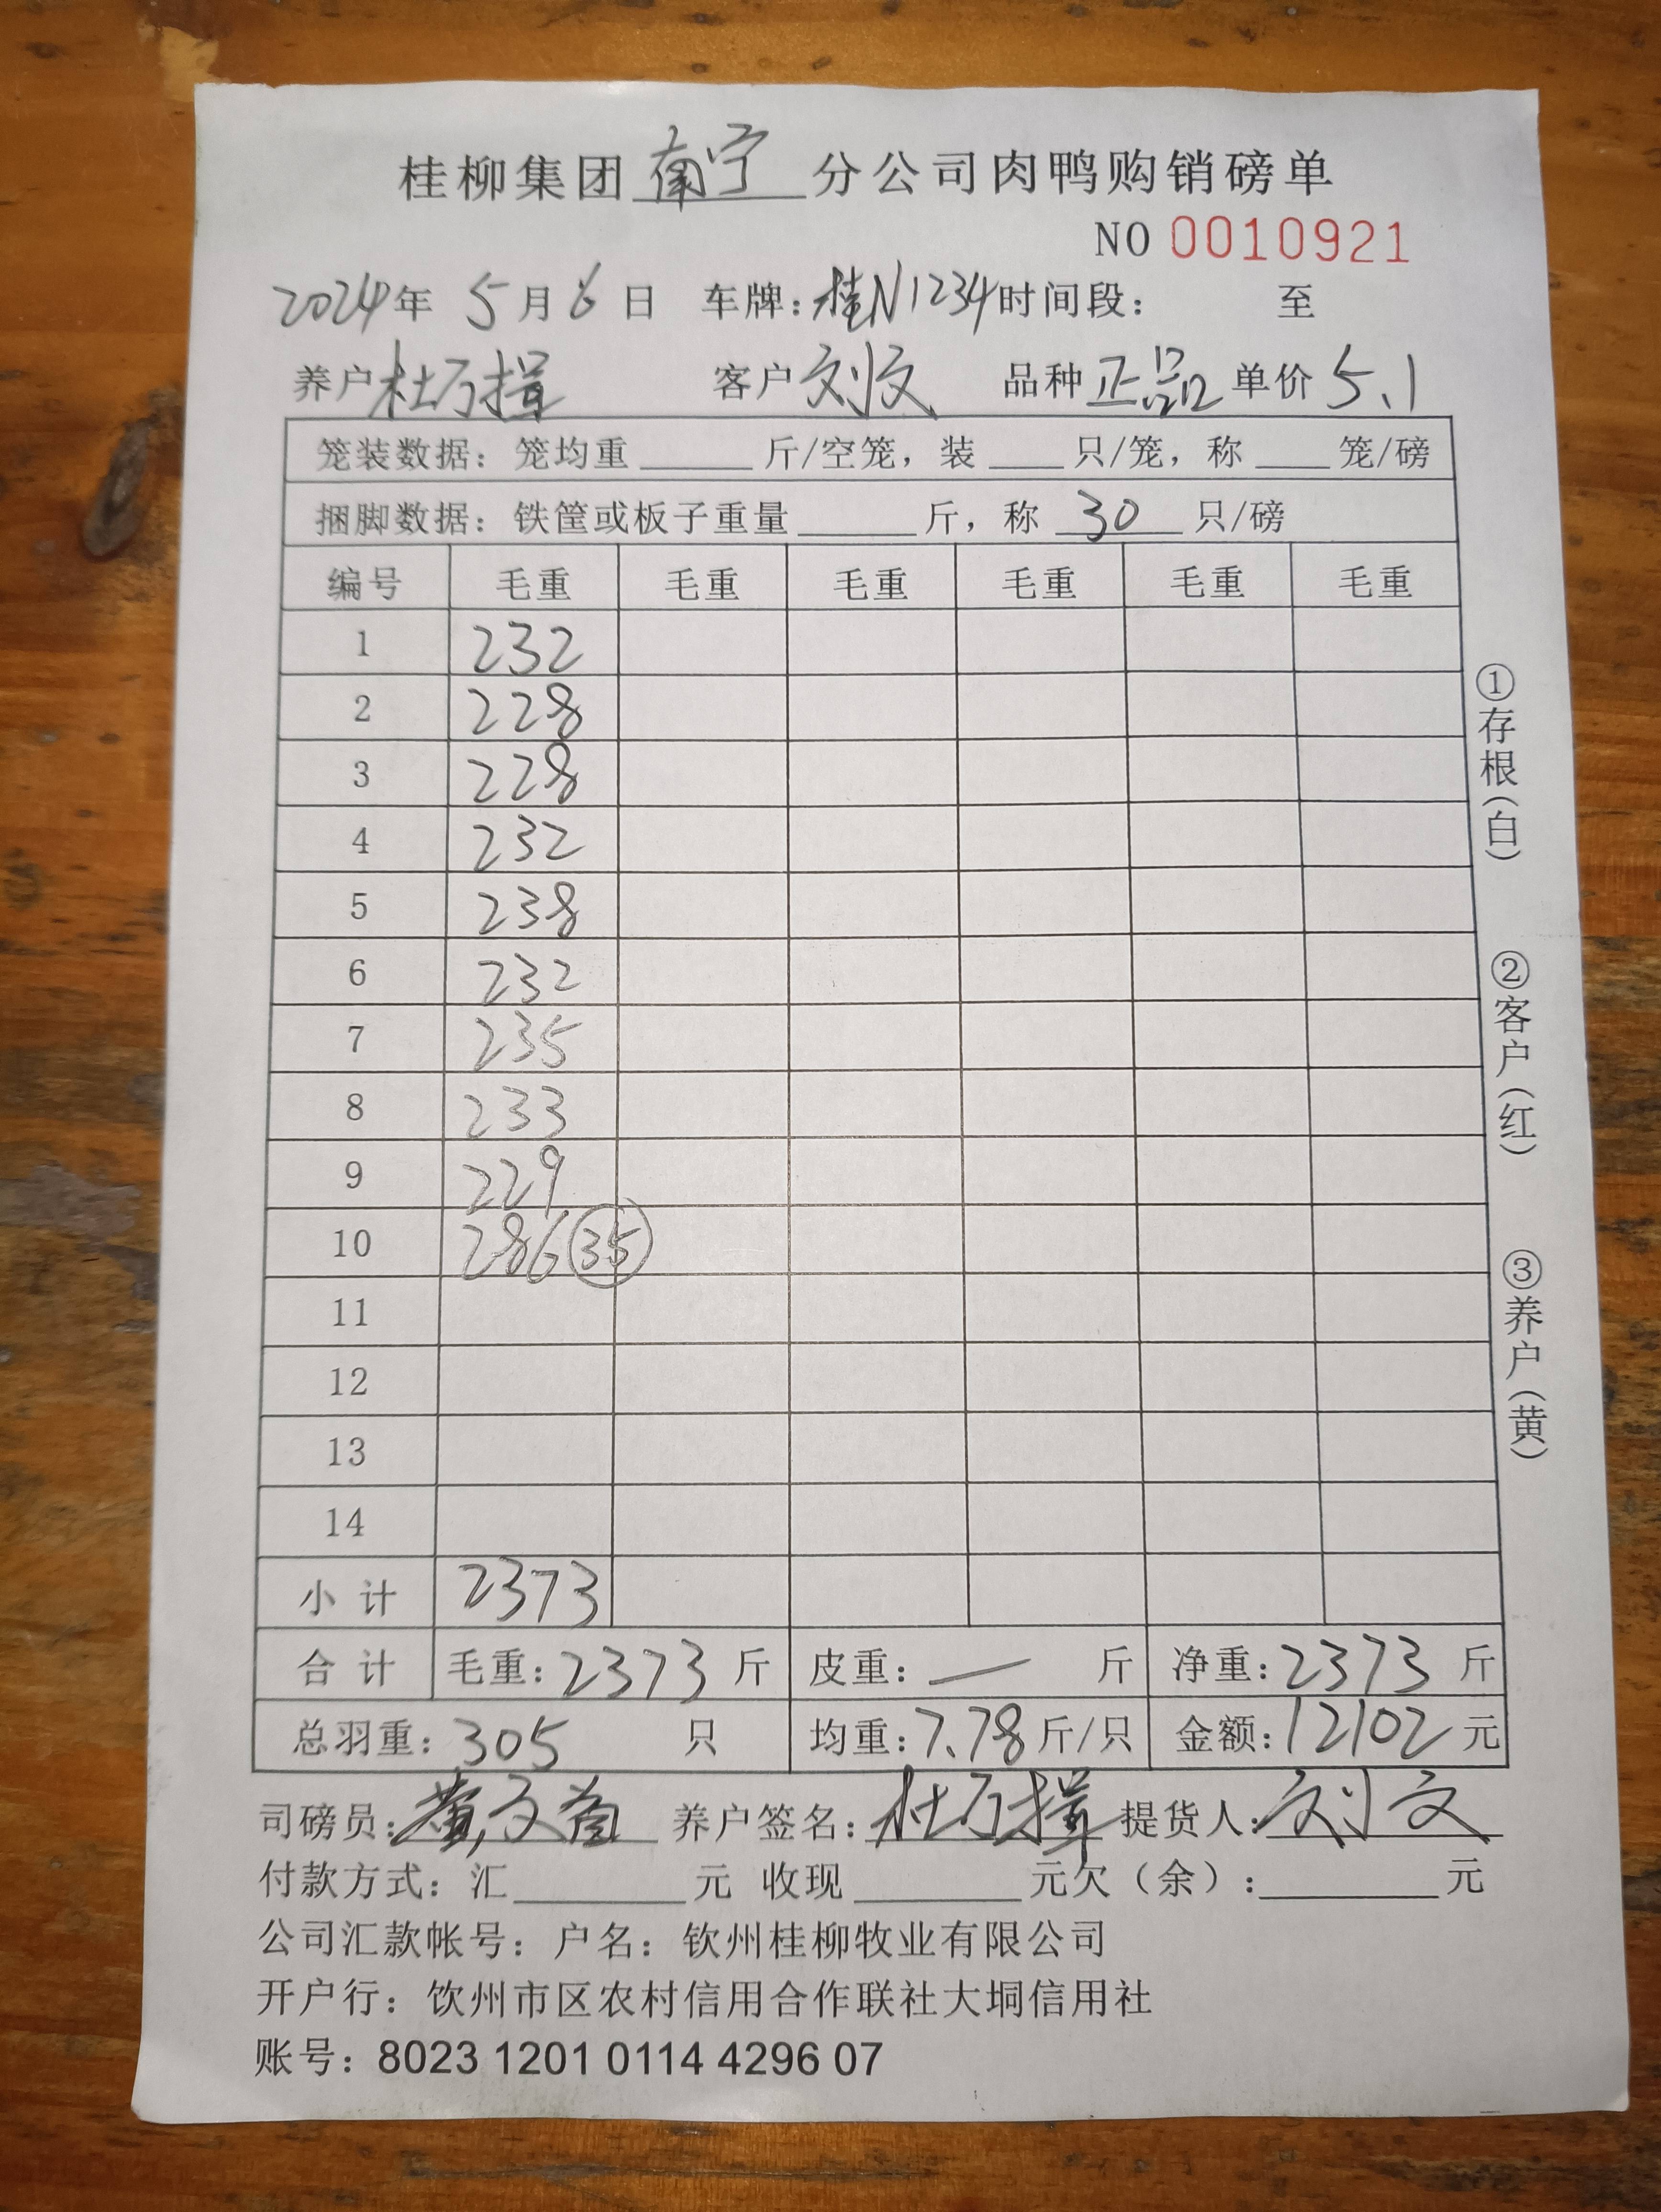 桂柳集团南宁分公司肉鸭购销磅单
NO 0010921
2024年 5月6日 车牌:桂N1234时间段: 至
养户杜万揖 客户刘文 品种正品 单价5.1
笼装数据: 笼均重______斤/空笼, 装____只/笼, 称____笼/磅
捆脚数据: 铁筐或板子重量______斤, 称 30 只/磅
编号 毛重 毛重 毛重 毛重 毛重 毛重
1 232
2 228
3 228
4 232
5 238
6 232
7 235
8 233
9 229
10 286 35
11
12
13
14
小计 2373
合计 毛重: 2373 斤 皮重: — 斤 净重: 2373 斤
总羽重: 305 只 均重: 7.78 斤/只 金额: 12102 元
司磅员: 黄 养户签名: 杜万揖 提货人: 刘文
付款方式: 汇________元 收现________元欠(余):________元
公司汇款帐号: 户名: 钦州桂柳牧业有限公司
开户行: 饮州市区农村信用合作联社大垌信用社
账号: 8023 1201 0114 4296 07
①存根(白)
②客户(红)
③养户(黄)